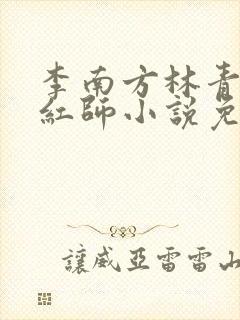 李南方林青
紅師小說免
讓威亞雷雷山